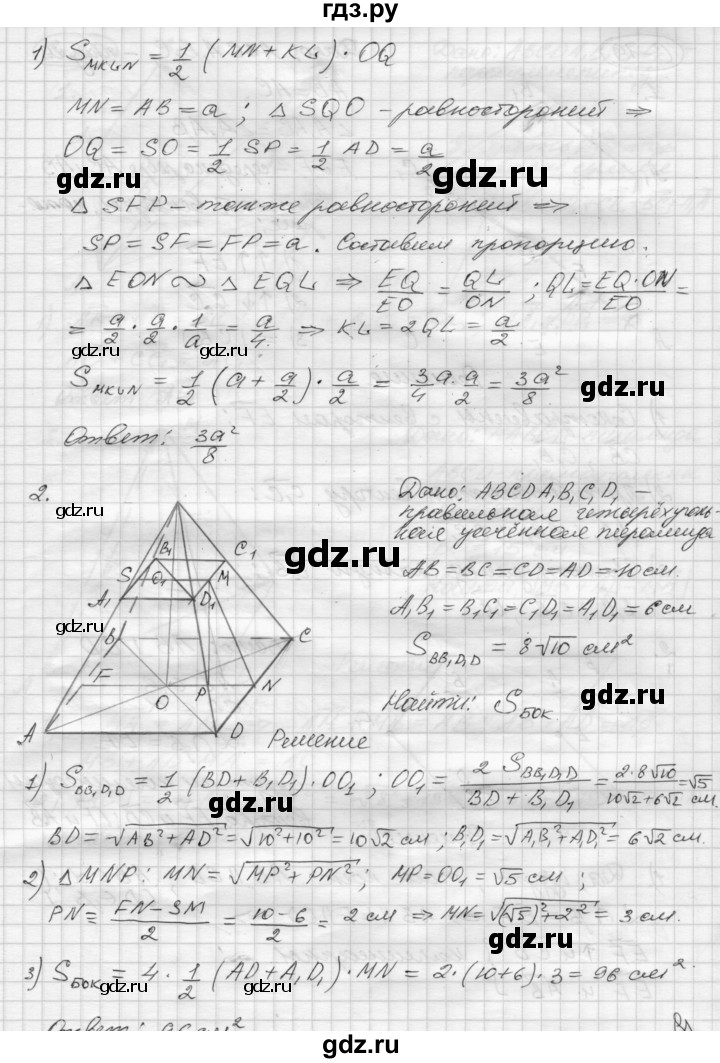 гдз.ру
1) S_MKLN = 1/2 (MN + KL) · OQ
MN = AB = a ; △ SQO – равносторонний ⇒
OQ = SO = 1/2 SP = 1/2 AD = a/2
gdz.ru
gdz.ru
△ SFP – также равносторонний ⇒
SP = SF = FP = a. Составим пропорцию.
△ EON ∾ △ EQL ⇒ EQ/EO = QL/ON ; QL = EQ·ON/EO =
= a/2 · a/2 · 1/a = a/4. ⇒ KL = 2QL = a/2.
gdz.ru
S_MKLN = 1/2 (a + a/2) · a/2 = 3a/4 · a/2 = 3a²/8
gdz.ru
Ответ: 3a²/8
2.
gdz.ru
Дано: ABCDA₁B₁C₁D₁ –
правильная четырёхуголь-
ная усечённая пирамида
AB = BC = CD = AD = 10 см.
A₁B₁ = B₁C₁ = C₁D₁ = A₁D₁ = 6 см
S_BB₁D₁D = 8√10 см²
Найти: S_бок.
B₁ C₁
S O₁ M
A₁ D₁
gdz.ru
gdz.ru
B C
F O P N
A D
Решение
1) S_BB₁D₁D = 1/2 (BD + B₁D₁) · OO₁ ; OO₁ = 2 S_BB₁D₁D / (BD + B₁D₁) = 2·8√10 / (10√2 + 6√2) = √5 см
gdz.ru
BD = √(AB² + AD²) = √(10² + 10²) = 10√2 см ; B₁D₁ = √(A₁B₁² + A₁D₁²) = 6√2 см
gdz.ru
2) △ MNP : MN = √(MP² + PN²) ; MP = OO₁ = √5 см ;
PN = (FN – SM)/2 = (10 – 6)/2 = 2 см ⇒ MN = √((√5)² + 2²) = 3 см.
gdz.ru
gdz.ru
3) S_бок = 4 · 1/2 (AD + A₁D₁) · MN = 2 · (10 + 6) · 3 = 96 см².